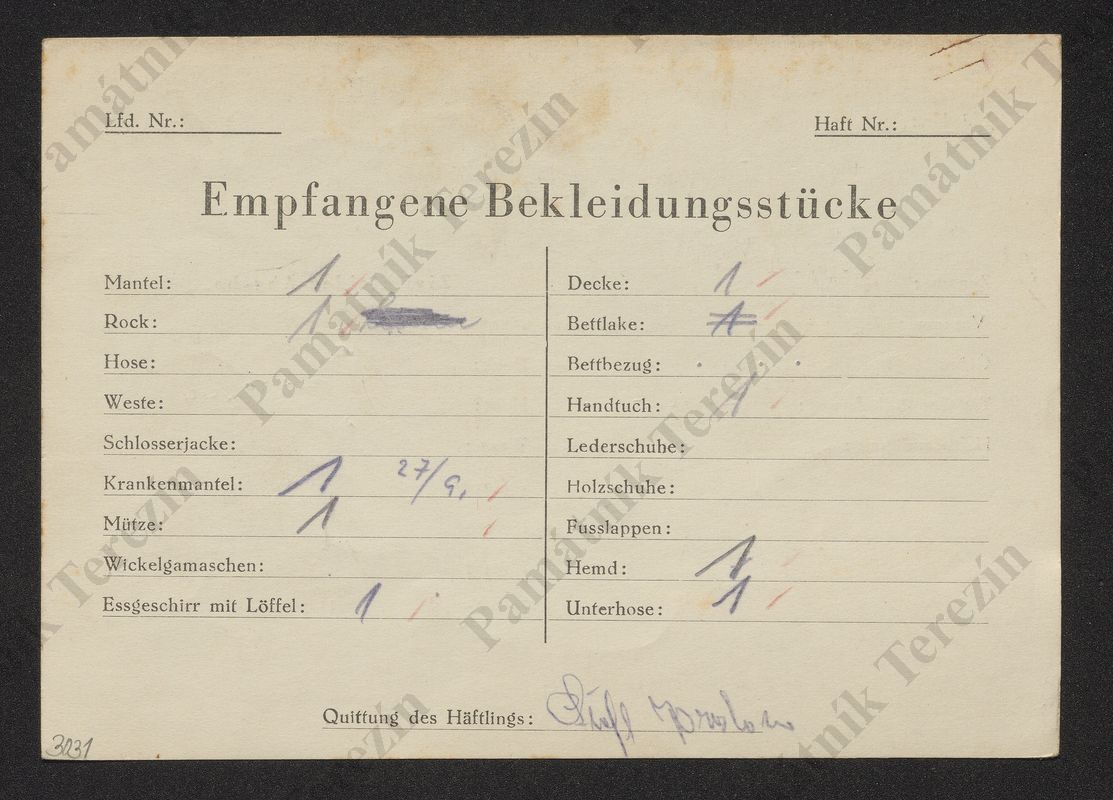 Lfd. Nr.:
Haft Nr.:
Empfangene Bekleidungsstücke
Mantel: 1
Rock: 1
Hose:
Weste:
Schlosserjacke:
Krankenmantel: 1 27/9.
Mütze: 1
Wickelgamaschen:
Essgeschirr mit Löffel: 1
Decke: 1
Bettlake: 1
Bettbezug: . .
Handtuch: 1
Lederschuhe:
Holzschuhe:
Fusslappen:
Hemd: 1
Unterhose: 1
Quittung des Häftlings:
3031
Památník Terezín